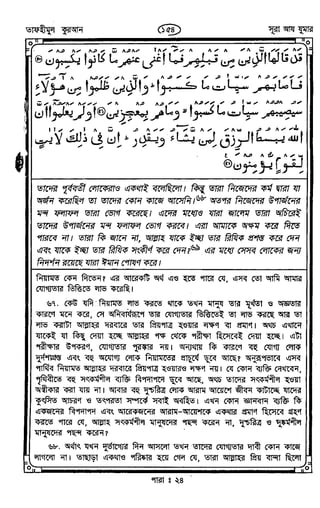 তাফহীমুল কুরআন
১৫৪
সূরা আয যুমার
قَدْ قَالَهَا الَّذِينَ مِنْ قَبْلِهِمْ فَمَا أَغْنَىٰ عَنْهُمْ مَا كَانُوا يَكْسِبُونَ
فَأَصَابَهُمْ سَيِّاٰتُ مَا كَسَبُوا ۚ وَالَّذِينَ ظَلَمُوا مِنْ هَٰؤُلَاءِ
سَيُصِيبُهُمْ سَيِّاٰتُ مَا كَسَبُوا ۙ وَمَا هُمْ بِمُعْجِزِينَ أَوَلَمْ يَعْلَمُوا أَنَّ
اللَّهَ يَبْسُطُ الرِّزْقَ لِمَنْ يَشَاءُ وَيَقْدِرُ ۚ إِنَّ فِي ذَٰلِكَ لَآيَاتٍ
لِقَوْمٍ يُؤْمِنُونَ
তাদের পূর্ববর্তী লোকেরাও একথাই বলেছিলো। কিন্তু তারা নিজেদের কর্ম দ্বারা যা
অর্জন করেছিল তা তাদের কোন কাজে আসেনি।৬৮ অতপর নিজেদের উপার্জনের
মন্দ ফলাফল তারা ভোগ করেছে। এদের মধ্যেও যারা জালেম তারা অচিরেই
তাদের উপার্জনের মন্দ ফলাফল ভোগ করবে। এরা আমাকে অক্ষম করে দিতে
পারবে না। তারা কি জানে না, আল্লাহ যাকে ইচ্ছা তার রিযিক প্রশস্ত করে দেন
এবং যাকে ইচ্ছা তার রিযিক সংকীর্ণ করে দেন?৬৯ এর মধ্যে সেসব লোকের জন্য
নিদর্শন রয়েছে যারা ঈমান পোষণ করে।
নিয়ামত কেন দিতেন? এর আরেকটি অর্থ এও হতে পারে যে, এসব তো আমি আমার
যোগ্যতার ভিত্তিতে লাভ করেছি।
৬৭. কেউ যদি নিয়ামত লাভ করতে থাকে তখন মানুষ তার মূর্খতা ও অজ্ঞতার
কারণে মনে করে, সে অনিবার্যরূপে তার যোগ্যতার ভিত্তিতেই তা লাভ করছে আর তা
লাভ করাটা আল্লাহর দরবারে তার প্রিয়পাত্র হওয়ার লক্ষণ বা প্রমাণ। অথচ এখানে
যাকেই যা কিছু দেয়া হচ্ছে আল্লাহর পক্ষ থেকে পরীক্ষা হিসেবেই দেয়া হচ্ছে। এটা
পরীক্ষার উপকরণ, যোগ্যতার পুরস্কার নয়। অন্যথায় কি কারণে বহু যোগ্য লোক
দুর্দশাগ্রস্ত এবং বহু অযোগ্য লোক নিয়ামতের প্রাচুর্যে ডুবে আছে? অনুরূপভাবে এসব
পার্থিব নিয়ামত আল্লাহর দরবারে প্রিয়পাত্র হওয়ারও লক্ষণ নয়। যে কোন ব্যক্তি দেখবেন,
পৃথিবীতে বহু সৎকর্মশীল ব্যক্তি বিপদাপদে ডুবে আছে, অথচ তাদের সৎকর্মশীল হওয়া
অস্বীকার করা যায় না। আবার বহু দুশ্চরিত্র লোক আরাম আয়েশে জীবন কাটাচ্ছে যাদের
কুৎসিত আচরণ ও তৎপরতা সম্পর্কে সবাই অবহিত। এখন কোন জ্ঞানবান ব্যক্তি কি
একজনের বিপদাপদ এবং আরেকজনের আরাম-আয়েশকে একথার প্রমাণ হিসেবে গ্রহণ
করতে পারে যে, আল্লাহ সৎকর্মশীল মানুষদের পছন্দ করেন না, দুশ্চরিত্র ও দুষ্কর্মশীল
মানুষদের পছন্দ করেন?
৬৮. অর্থাৎ যখন দুর্ভাগ্যের দিন আসলো তখন তাদের যোগ্যতার দাবী কোন কাজে
লাগলো না। তাছাড়া একথাও পরিষ্কার হয়ে গেল যে, তারা আল্লাহর প্রিয় বান্দা ছিলো
পারা ঃ ২৪